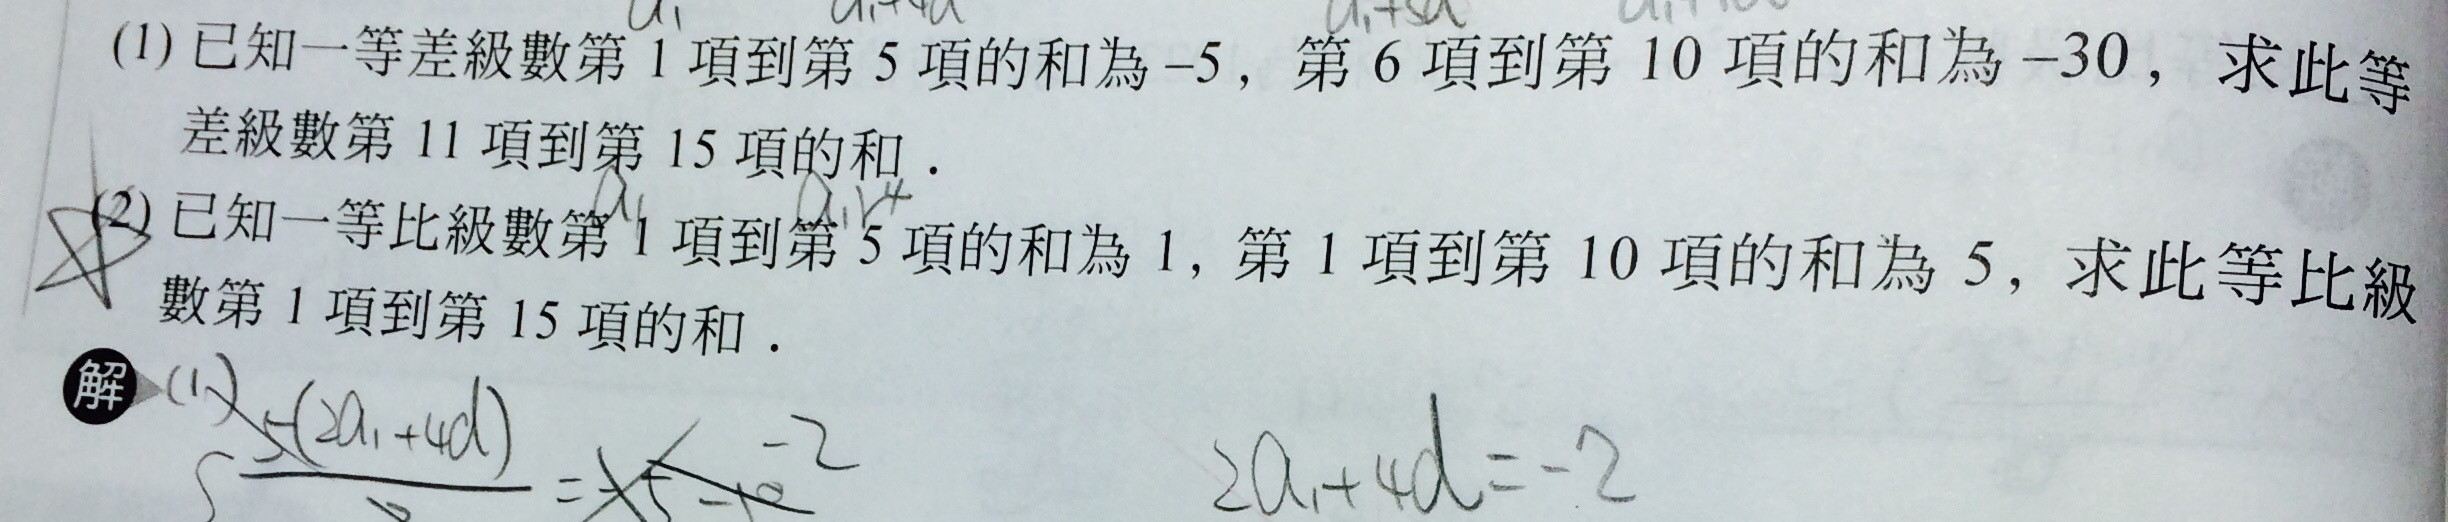 a₁ a₁+4d a₁+5d
(1) 已知一等差級數第 1 項到第 5 項的和為 –5, 第 6 項到第 10 項的和為 –30, 求此等
差級數第 11 項到第 15 項的和.
a₁ a₁r⁴
(2) 已知一等比級數第 1 項到第 5 項的和為 1, 第 1 項到第 10 項的和為 5, 求此等比級
數第 1 項到第 15 項的和.
解 (1) 5(2a₁+4d) = -2 2a₁+4d=-2